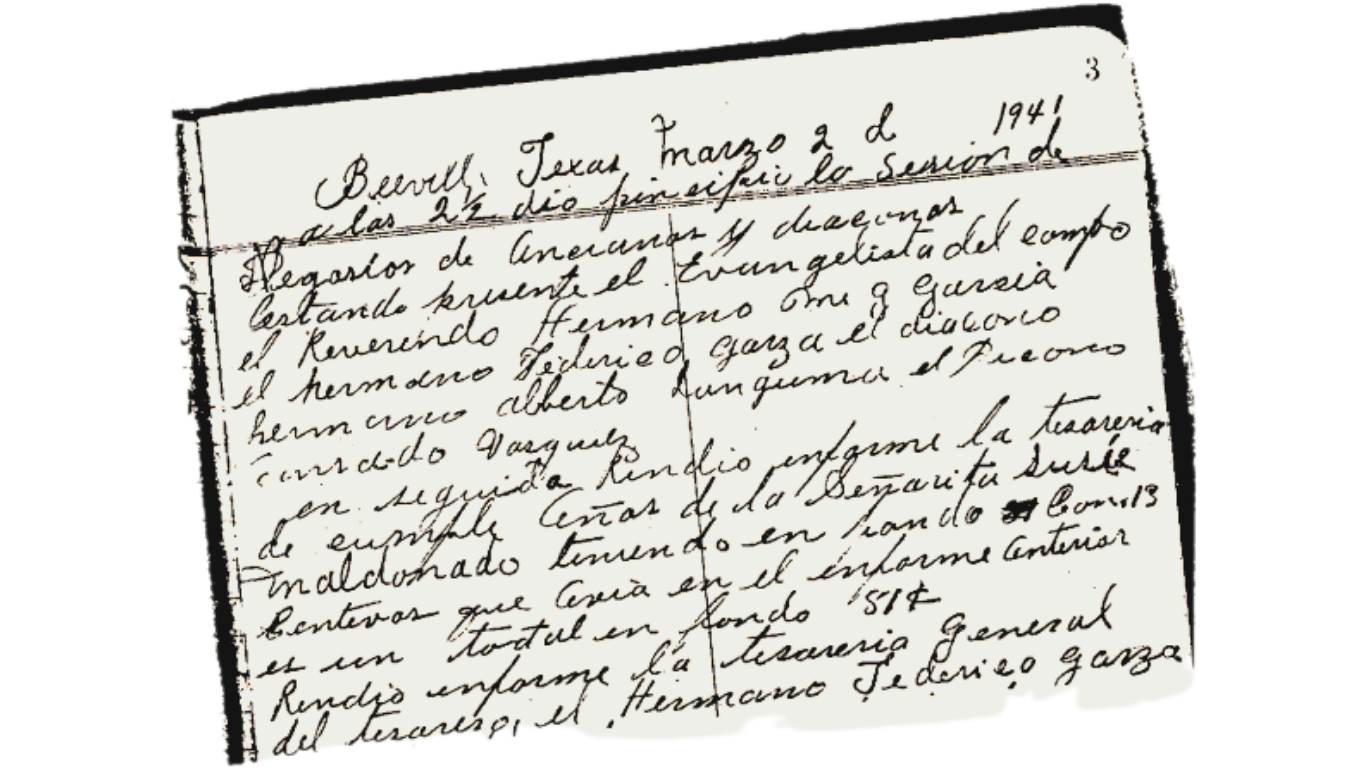 3
Beevill, Texas Marzo 2 d 1941
a las 2½ dio principio la Sesion de
Negosios de Ancianos y diaconos
Estando presente el Evangelista del campo
el Reverendo Hermano G Garsia
el hermano Federico Garza el diacono
hermano alberto Lunguma el Diacono
Conrado Vasquez
en seguida Rendio informe la tesoreria
de cumple Años de la Señorita Susie
maldonado teniendo en fondo Con 13
Centavos que Avia en el informe Anterior
es un total en fondo 51¢
Rendio informe la tesoreria General
del tesorero, el Hermano Federico Garza